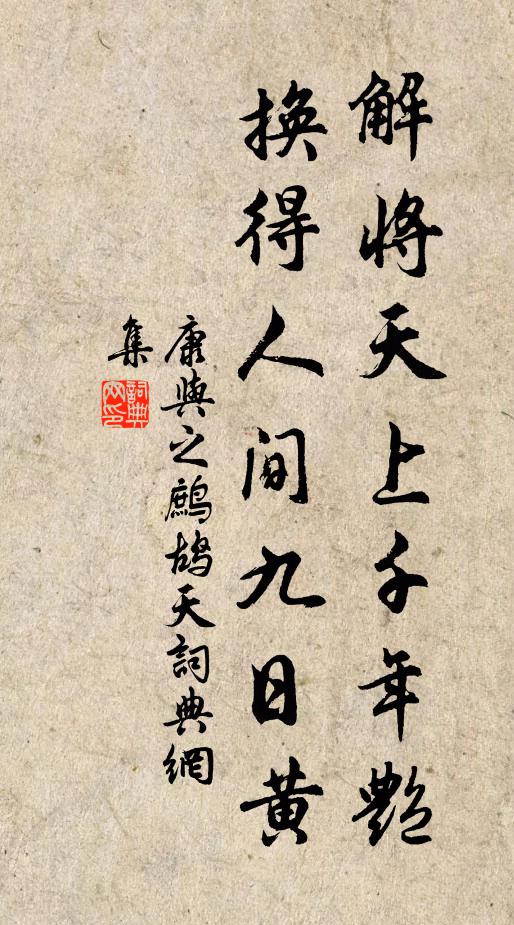 解將天上千年艷
換得人間九日黃
康與之鷓鴣天詞典網
集
詞典
网印